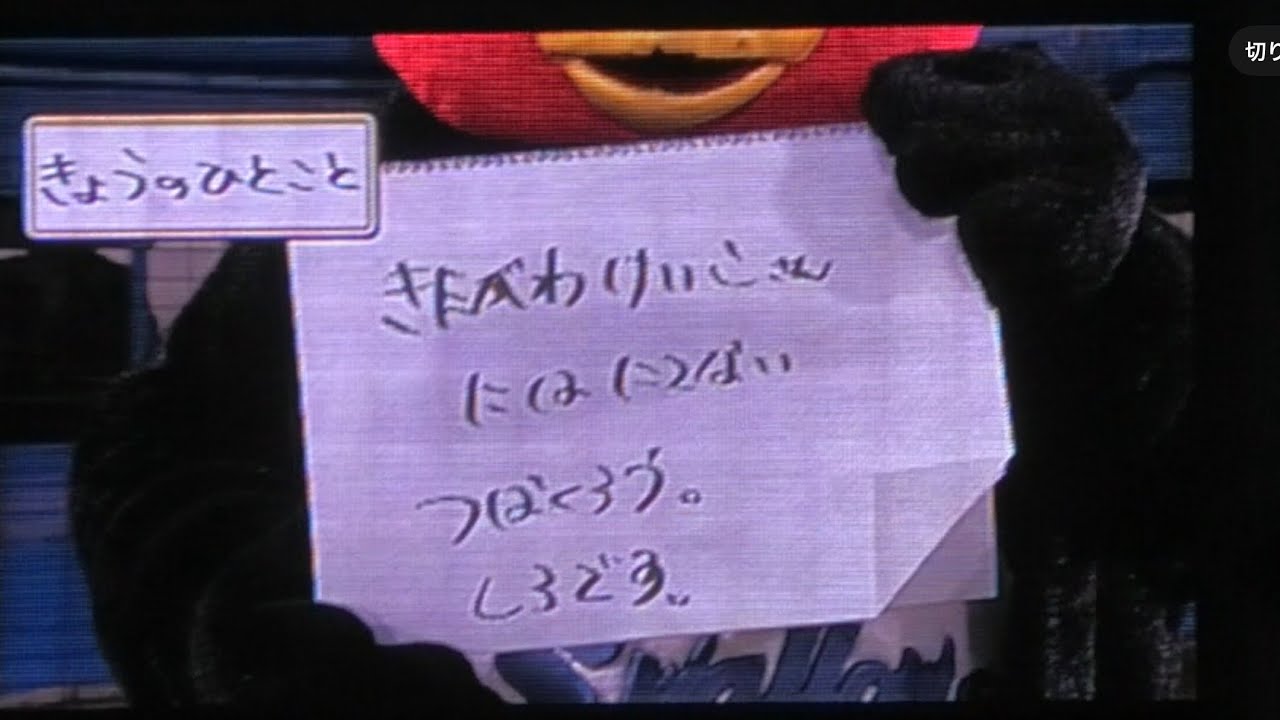 切り
きょうのひとこと
きたべわけいこさん
には につばい
つばくろう。
しろどる。
Swallow